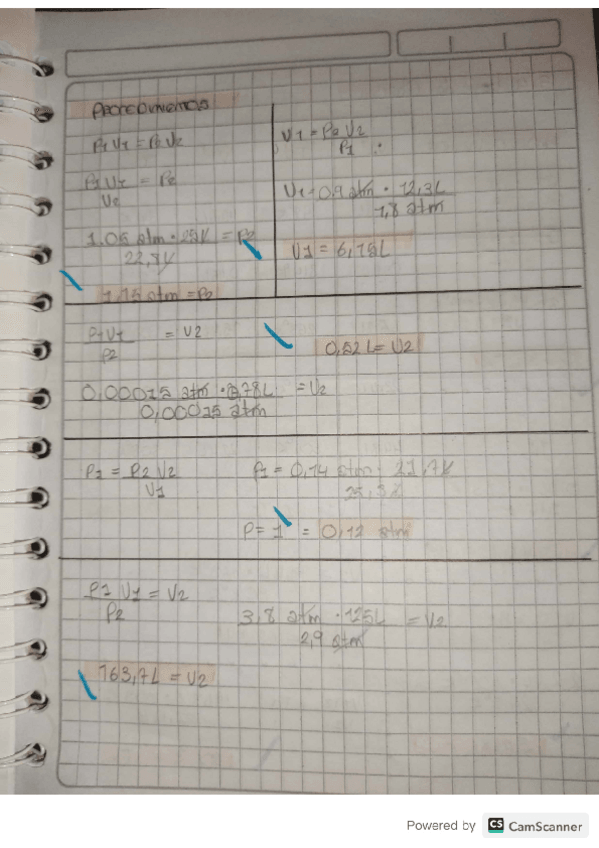 PROCEDIMIENTOS
P1 V1 = P2 V2
P1 V1 = P2
V2
1.05 atm · 25L = P2
22,8L
1,15 atm = P2
V1 = P2 V2
P1
V1 = 0,9 atm · 12,3L
1,8 atm
V1 = 6,15L
P1 V1 = V2
P2
0,52 L = V2
0.00015 atm · 0,78L = V2
atm
P1 = P2 V2
V1
P1 = 0,14 atm ·
P = 1 = 0,12 atm
P1 V1 = V2
P2
3,8 atm · 125L = V2
2,9 atm
163,7L = V2
Powered by CS CamScanner